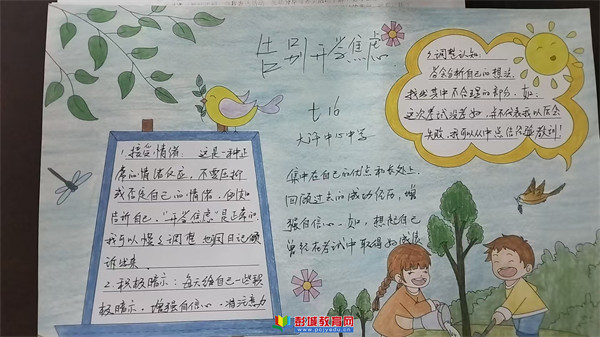 告别开学焦虑
七16
大许中心中学
1.接受情绪: 这是一种正
常的情绪反应,不要压抑
或否定自己的情绪,例如
告诉自己,"开学焦虑"是正常的
我可以慢慢调整 也可用日记倾
诉出来
2.积极暗示:每天给自己一些积
极暗示,增强自信心,将注意力
集中在自己的优点和长处上.
回顾过去的成功经历,增
强自信心.如,想起自己
曾经在考试中取得好成绩
3.调整认知
学会分析自己的想法,
找出其中不合理的部分,如:
这次考试没考好,并不代表我以后会
失败,我可以从中总结经验教训!
彭城教育网
www.pcjyadu.cn